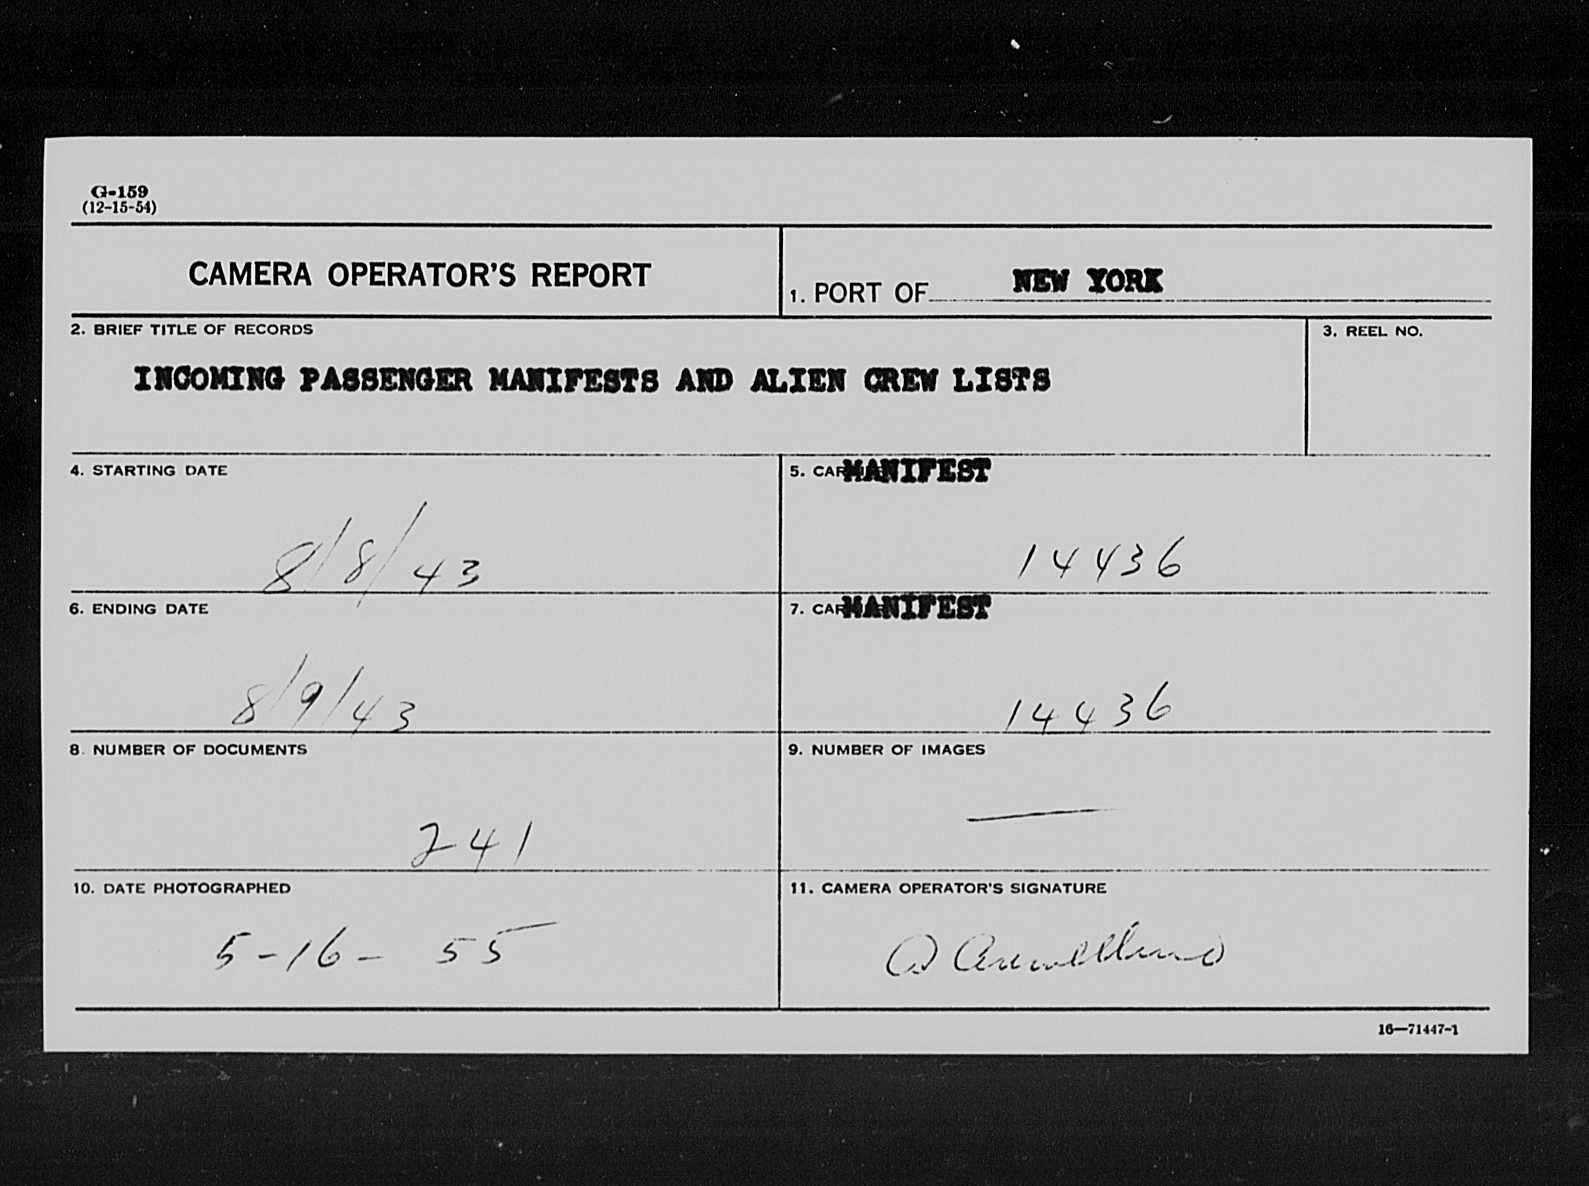 G-159
(12-15-54)
CAMERA OPERATOR'S REPORT
1. PORT OF NEW YORK
2. BRIEF TITLE OF RECORDS
INCOMING PASSENGER MANIFESTS AND ALIEN CREW LISTS
3. REEL NO.
4. STARTING DATE
8/8/43
5. MANIFEST
14436
6. ENDING DATE
8/9/43
7. MANIFEST
14436
8. NUMBER OF DOCUMENTS
241
9. NUMBER OF IMAGES
—
10. DATE PHOTOGRAPHED
5-16-55
11. CAMERA OPERATOR'S SIGNATURE
16—71447-1